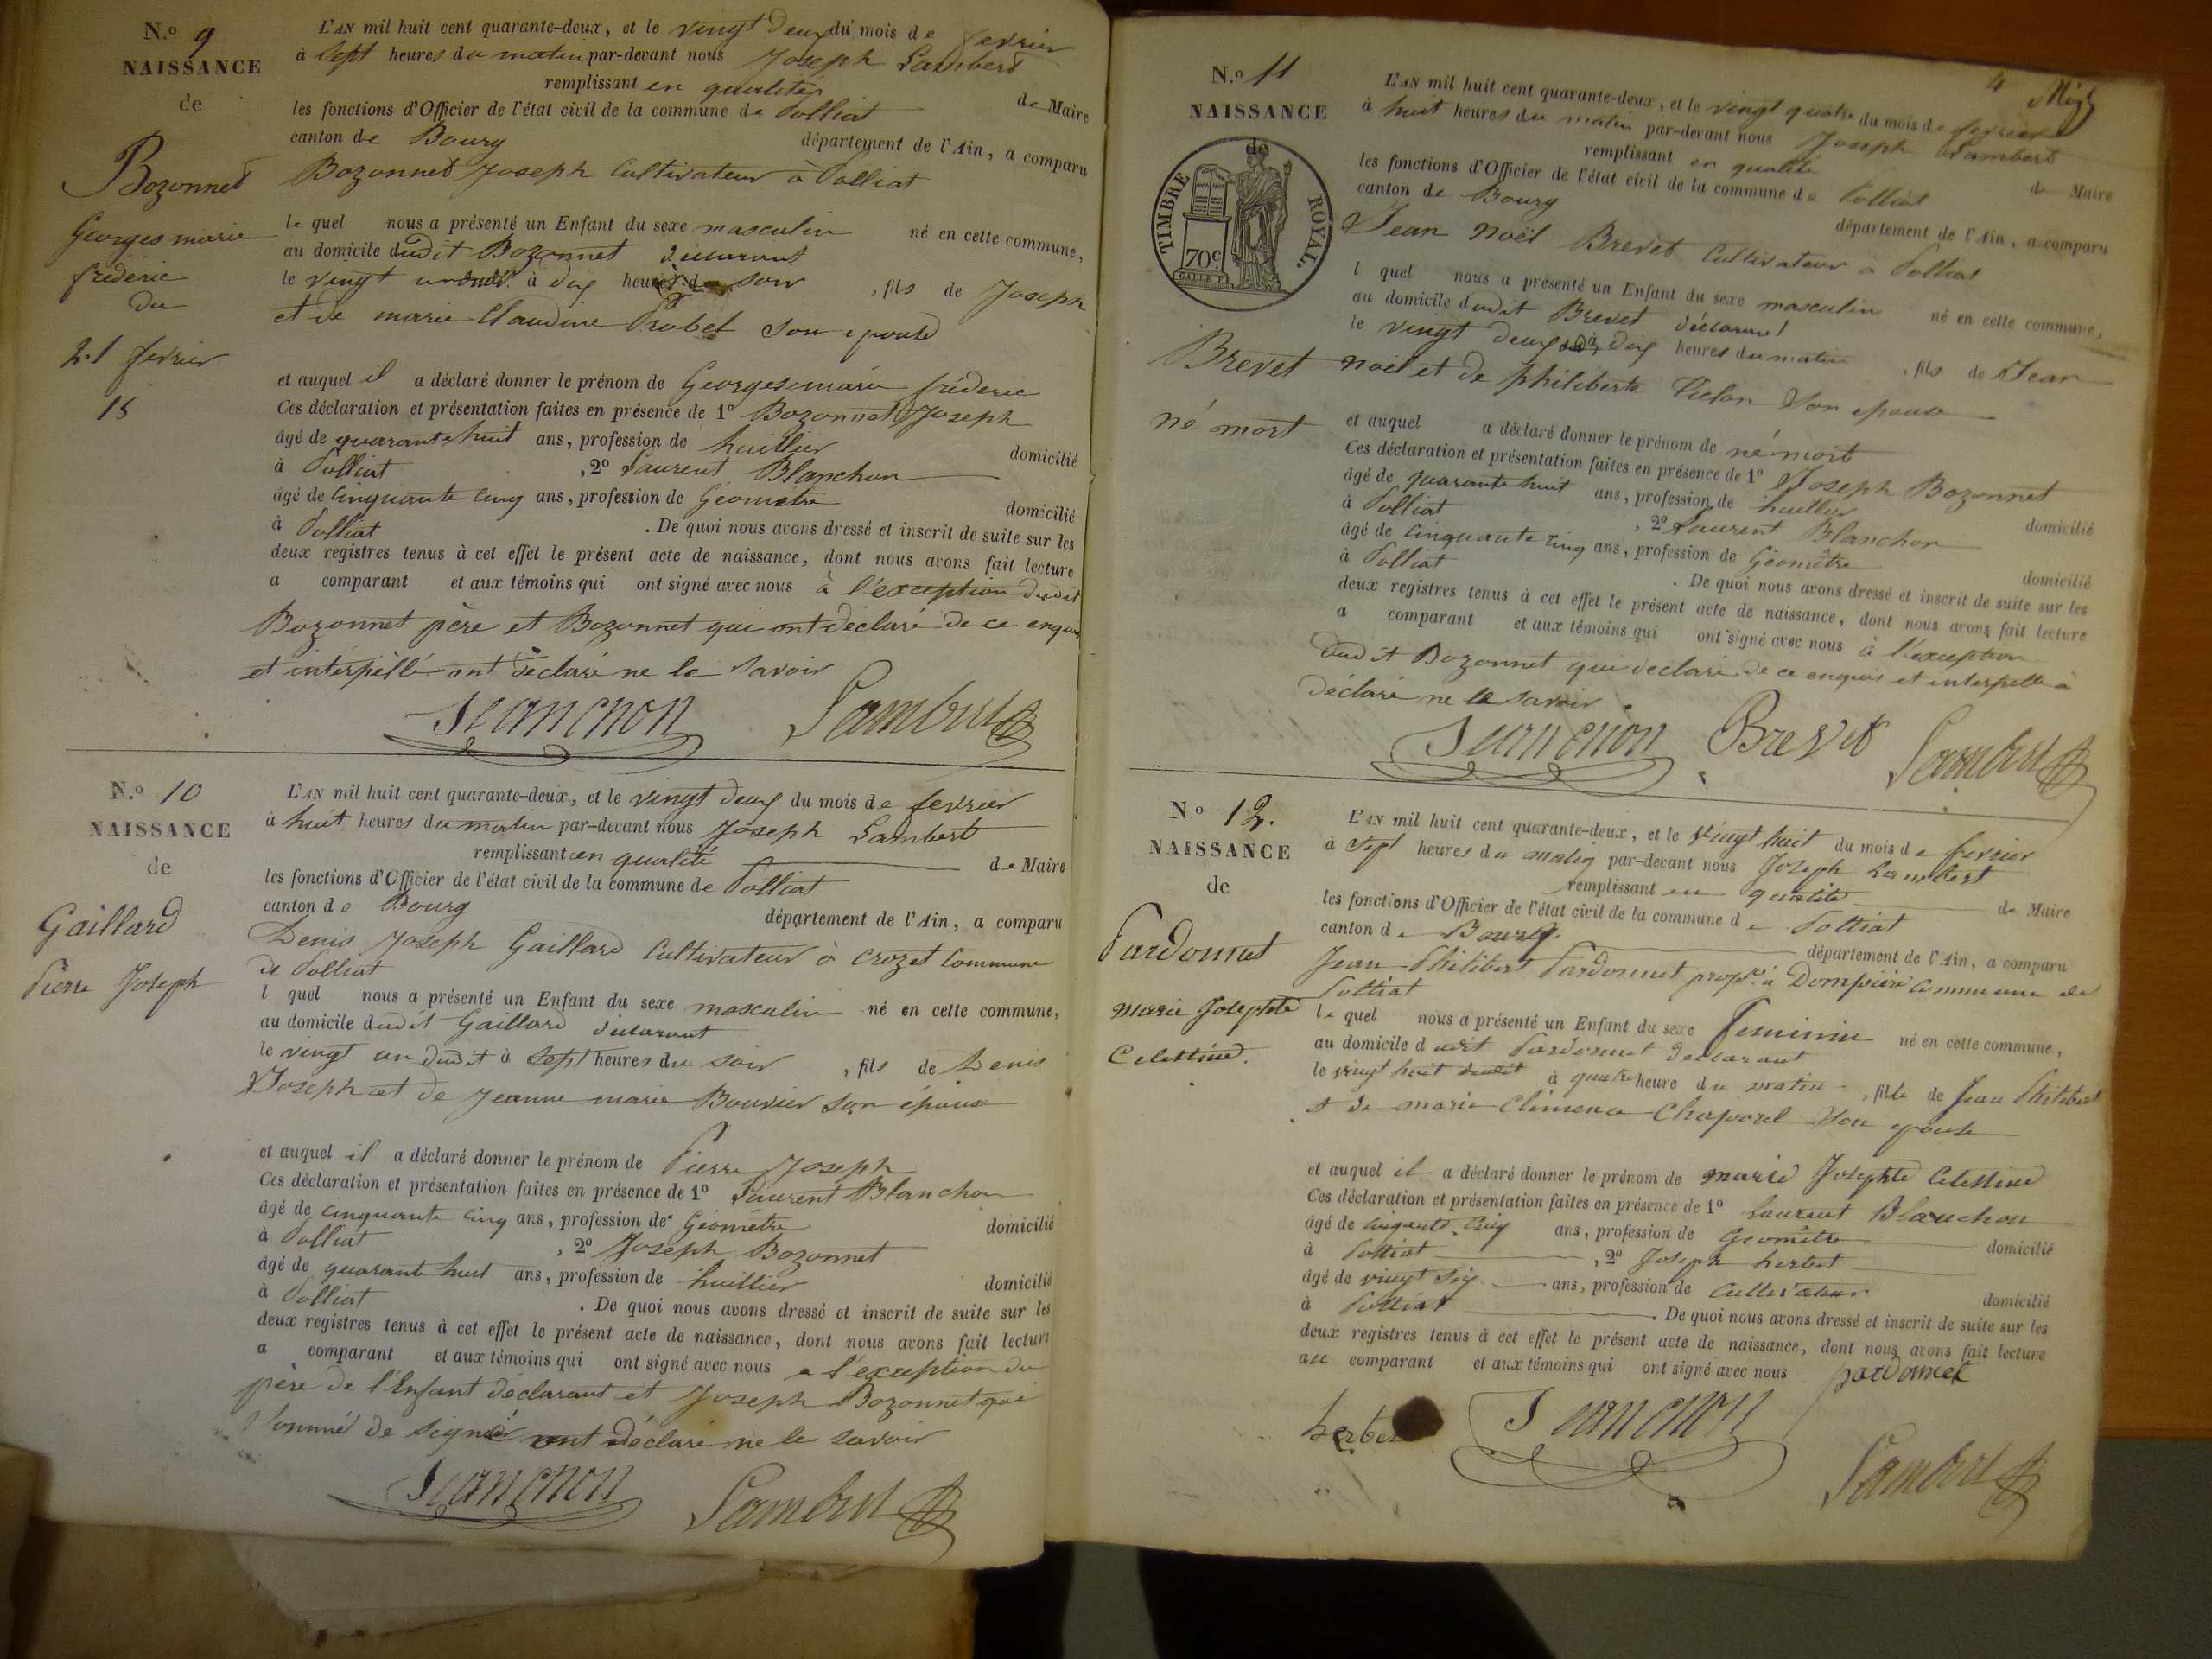 N.o 9
NAISSANCE
de
Bozonnet
Georges marie
fréderic
du
21 fevrier
18
L'AN mil huit cent quarante-deux, et le vingt deux du mois de fevrier
à sept heures du matin par-devant nous Joseph Lambert
remplissant en qualité de Maire
les fonctions d'Officier de l'état civil de la commune de Polliat
canton de Bourg département de l'Ain, a comparu
Bozonnet Joseph Cultivateur à Polliat
le quel nous a présenté un Enfant du sexe masculin né en cette commune,
au domicile dudit Bozonnet déclarant
le vingt un dudit à dix heures du soir, fils de Joseph
et de marie Claudine Probet son epouse
et auquel il a déclaré donner le prénom de Georges marie fréderic
Ces déclaration et présentation faites en présence de 1º Bozonnet Joseph
âgé de quarante huit ans, profession de huillier domicilié
à Polliat, 2º Laurent Blanchon
âgé de cinquante cinq ans, profession de Géomètre domicilié
à Polliat. De quoi nous avons dressé et inscrit de suite sur les
deux registres tenus à cet effet le présent acte de naissance, dont nous avons fait lecture
a comparant et aux témoins qui ont signé avec nous à l'exception dudit
Bozonnet père et Bozonnet qui ont déclaré de ce enquis
et interpéllé ont déclaré ne le savoir
Blanchon Lambert
N.o 10
NAISSANCE
de
Gaillard
Pierre Joseph
L'AN mil huit cent quarante-deux, et le vingt deux du mois de fevrier
à huit heures du matin par-devant nous Joseph Lambert
remplissant en qualité de Maire
les fonctions d'Officier de l'état civil de la commune de Polliat
canton de Bourg département de l'Ain, a comparu
Denis Joseph Gaillard Cultivateur à Crozet Commune
de Polliat
l quel nous a présenté un Enfant du sexe masculin né en cette commune,
au domicile dudit Gaillard déclarant
le vingt un dudit à sept heures du soir, fils de Denis
Joseph et de Jeanne marie Bouvier son épouse
et auquel il a déclaré donner le prénom de Pierre Joseph
Ces déclaration et présentation faites en présence de 1º Laurent Blanchon
âgé de cinquante cinq ans, profession de Géomètre domicilié
à Polliat, 2º Joseph Bozonnet
âgé de quarante huit ans, profession de huillier domicilié
à Polliat. De quoi nous avons dressé et inscrit de suite sur les
deux registres tenus à cet effet le présent acte de naissance, dont nous avons fait lecture
a comparant et aux témoins qui ont signé avec nous a l'exception du
père de l'Enfant déclarant et Joseph Bozonnet qui
sommé de signer ont déclaré ne le savoir
Blanchon Lambert
4
N.o 11
NAISSANCE
de
TIMBRE ROYAL.
70c
Brevet
né mort
L'AN mil huit cent quarante-deux, et le vingt quatre du mois de fevrier
à huit heures du matin par-devant nous Joseph Lambert
remplissant en qualité de Maire
les fonctions d'Officier de l'état civil de la commune de Polliat
canton de Bourg département de l'Ain, a comparu
Jean Noël Brevet Cultivateur a Polliat
l quel nous a présenté un Enfant du sexe masculin né en cette commune,
au domicile dudit Brevet déclarant
le vingt deux à dix heures du matin, fils de Jean
noël et de philiberte son epouse
et auquel a déclaré donner le prénom de né mort
Ces déclaration et présentation faites en présence de 1º Joseph Bozonnet
âgé de quarante huit ans, profession de huillier domicilié
à Polliat, 2º Laurent Blanchon
âgé de cinquante cinq ans, profession de Géomètre domicilié
à Polliat. De quoi nous avons dressé et inscrit de suite sur les
deux registres tenus à cet effet le présent acte de naissance, dont nous avons fait lecture
a comparant et aux témoins qui ont signé avec nous à l'exception
dudit Bozonnet qui déclaré de ce enquis et interpellé a
déclaré ne le savoir
Blanchon Brevet Lambert
N.o 12.
NAISSANCE
de
Pardonnet
Marie Josephte
Celestine.
L'AN mil huit cent quarante-deux, et le vingt huit du mois de fevrier
à sept heures du matin par-devant nous Joseph Lambert
remplissant en qualité de Maire
les fonctions d'Officier de l'état civil de la commune de Polliat
canton de Bourg. département de l'Ain, a comparu
Jean Philibert Pardonnet propre. à Dompière Commune de
Polliat
le quel nous a présenté un Enfant du sexe feminin né en cette commune,
au domicile dudit Pardonnet déclarant
le vingt huit dudit à quatre heure du matin, fille de Jean Philibert
et de marie Climence Chaparel son epouse
et auquel il a déclaré donner le prénom de marie Josephte Celestine
Ces déclaration et présentation faites en présence de 1º Laurent Blanchon
âgé de cinquante cinq ans, profession de Géomètre domicilié
à Polliat, 2º Joseph herbet
âgé de vingt six ans, profession de Cultivateur domicilié
à Polliat. De quoi nous avons dressé et inscrit de suite sur les
deux registres tenus à cet effet le présent acte de naissance, dont nous avons fait lecture
au comparant et aux témoins qui ont signé avec nous pardonnet
herbet Blanchon
Lambert